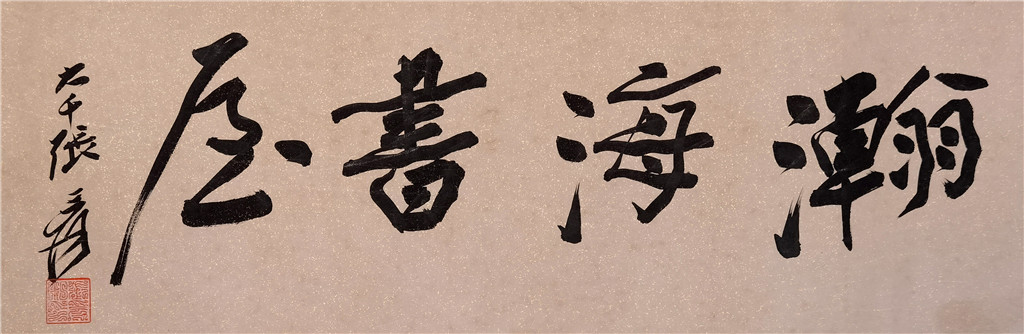 瀚海書屋
大千張爰